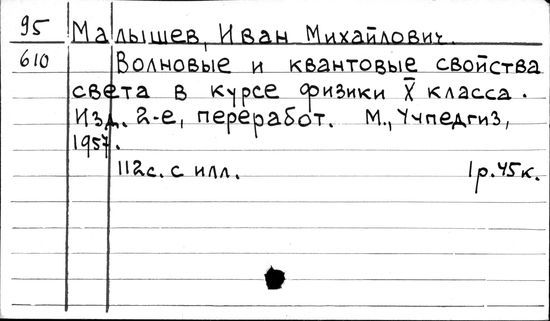 95 Малышев, Иван Михайлович.
610 Волновые и квантовые свойства
света в курсе физики X класса.
Изд. 2-е, переработ. М., Учпедгиз,
1957.
112с. с илл. 1р.45к.